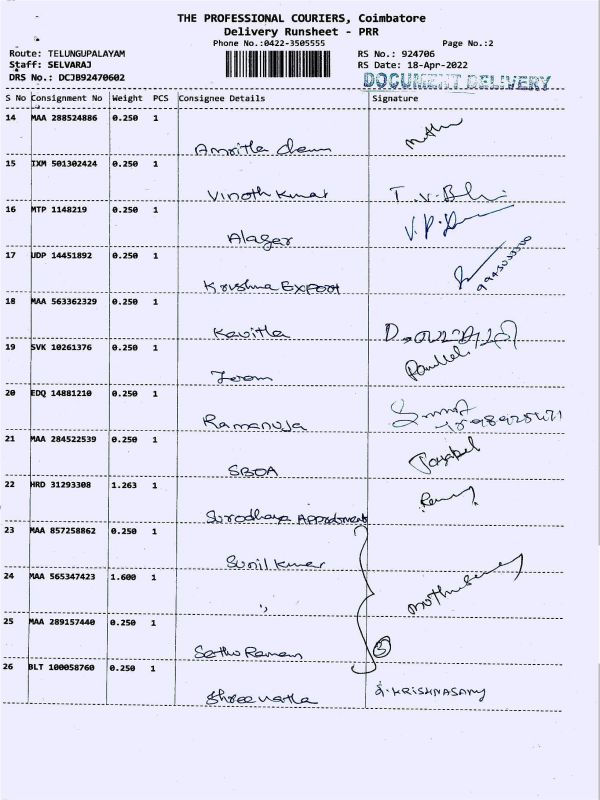 THE PROFESSIONAL COURIERS, Coimbatore
Delivery Runsheet - PRR
Phone No.:0422-3505555 Page No.:2
Route: TELUNGUPALAYAM RS No.: 924706
Staff: SELVARAJ RS Date: 18-Apr-2022
DRS No.: DCJB92470602 DOCUMENT DELIVERY
S No Consignment No Weight PCS Consignee Details Signature
14 MAA 288524886 0.250 1
15 IXM 501302424 0.250 1
Vinoth Kumar T.V.
16 MTP 1148219 0.250 1
Alager V.P.
17 UDP 14451892 0.250 1
Krishna Export
18 MAA 563362329 0.250 1
Kavitla
19 SVK 10261376 0.250 1
Zoom
20 EDQ 14881210 0.250 1
Ramanuja
21 MAA 284522539 0.250 1
SBOA
22 HRD 31293308 1.263 1
23 MAA 857258862 0.250 1
Sunil Kumar
24 MAA 565347423 1.600 1
"
25 MAA 289157440 0.250 1
Sethu Raman 3
26 BLT 100058760 0.250 1
KRISHNASAMY